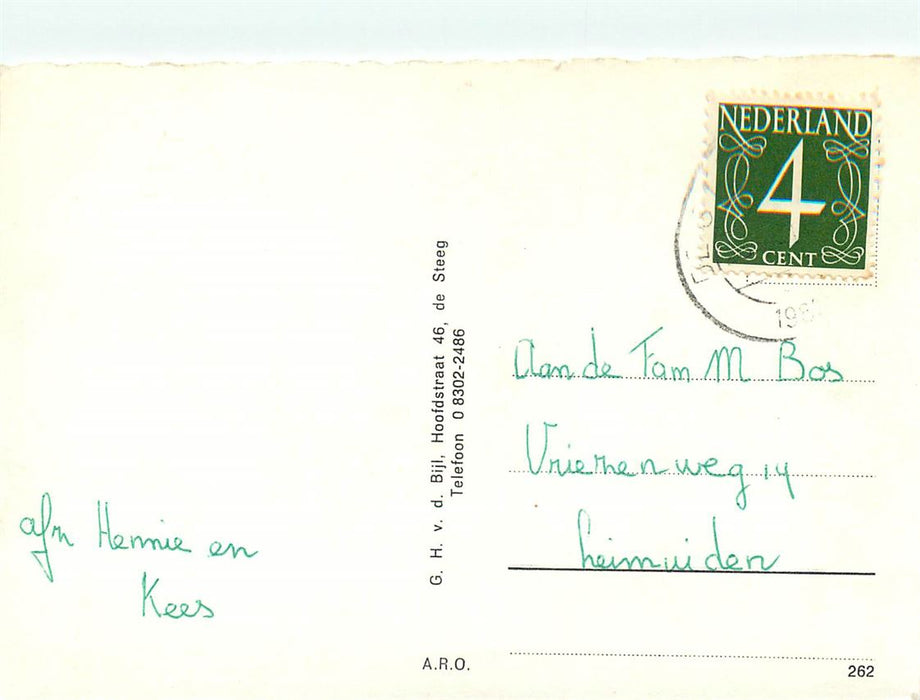 NEDERLAND
4
CENT
Aan de Fam M Bos
weg 14
afn Hennie en
Kees
G. H. v. d. Bijl, Hoofdstraat 46, de Steeg
Telefoon 0 8302-2486
A.R.O.
262